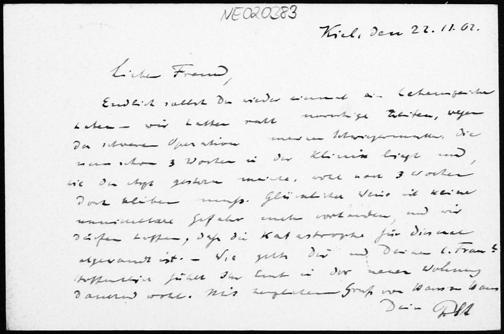 NE020383
Kiel, den 22.11.62.
Lieber Freund,
Endlich sollst Du wieder einmal ein Lebenszeichen
haben – wir hatten sehr unruhige Zeiten, wegen
der schweren Operation meiner Schwiegermutter. Die
nun schon 3 Wochen in der Klinik liegt und,
wie der Arzt gestern meinte, wohl noch 3 Wochen
dort bleiben muss. Glücklicher Weise ist keine
unmittelbare Gefahr mehr vorhanden, und wir
dürfen hoffen, dass die Katastrophe für diesmal
abgewandt ist. – Wie geht's Dir und Deiner l. Frau?
Hoffentlich fühlt Ihr Euch in der neuen Wohnung
dauernd wohl. Mit herzlichem Gruss von Haus zu Haus
Dein